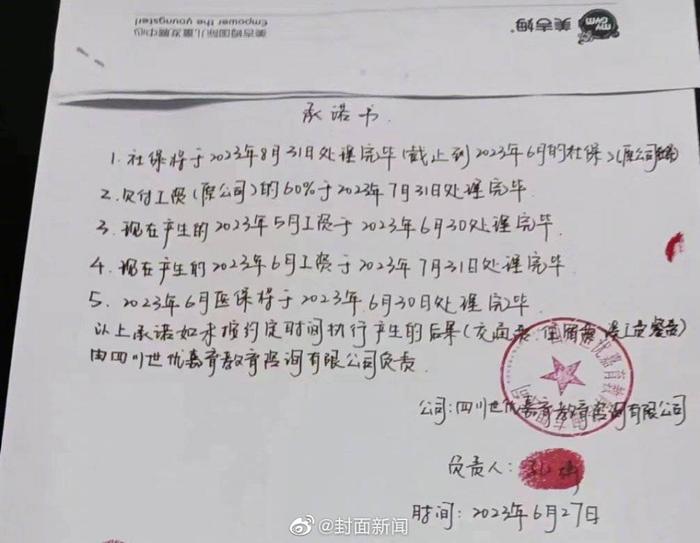 美吉姆国际儿童发展中心
Empower the youngster!
美吉姆
MY GYM
承诺书
1. 社保将于2023年8月31日处理完毕(截止到2023年6月的社保)(原公司
2. 欠付工资(原公司)的60%于2023年7月31日处理完毕
3. 现在产生的2023年5月工资于2023年6月30处理完毕
4. 现在产生的2023年6月工资于2023年7月31日处理完毕
5. 2023年6月医保将于2023年6月30日处理完毕
以上承诺如未按约定时间执行产生的后果(
由四川世优嘉育教育咨询有限公司负责
公司:四川世优嘉育教育咨询有限公司
负责人:孔
时间:2023年6月27日
@封面新闻